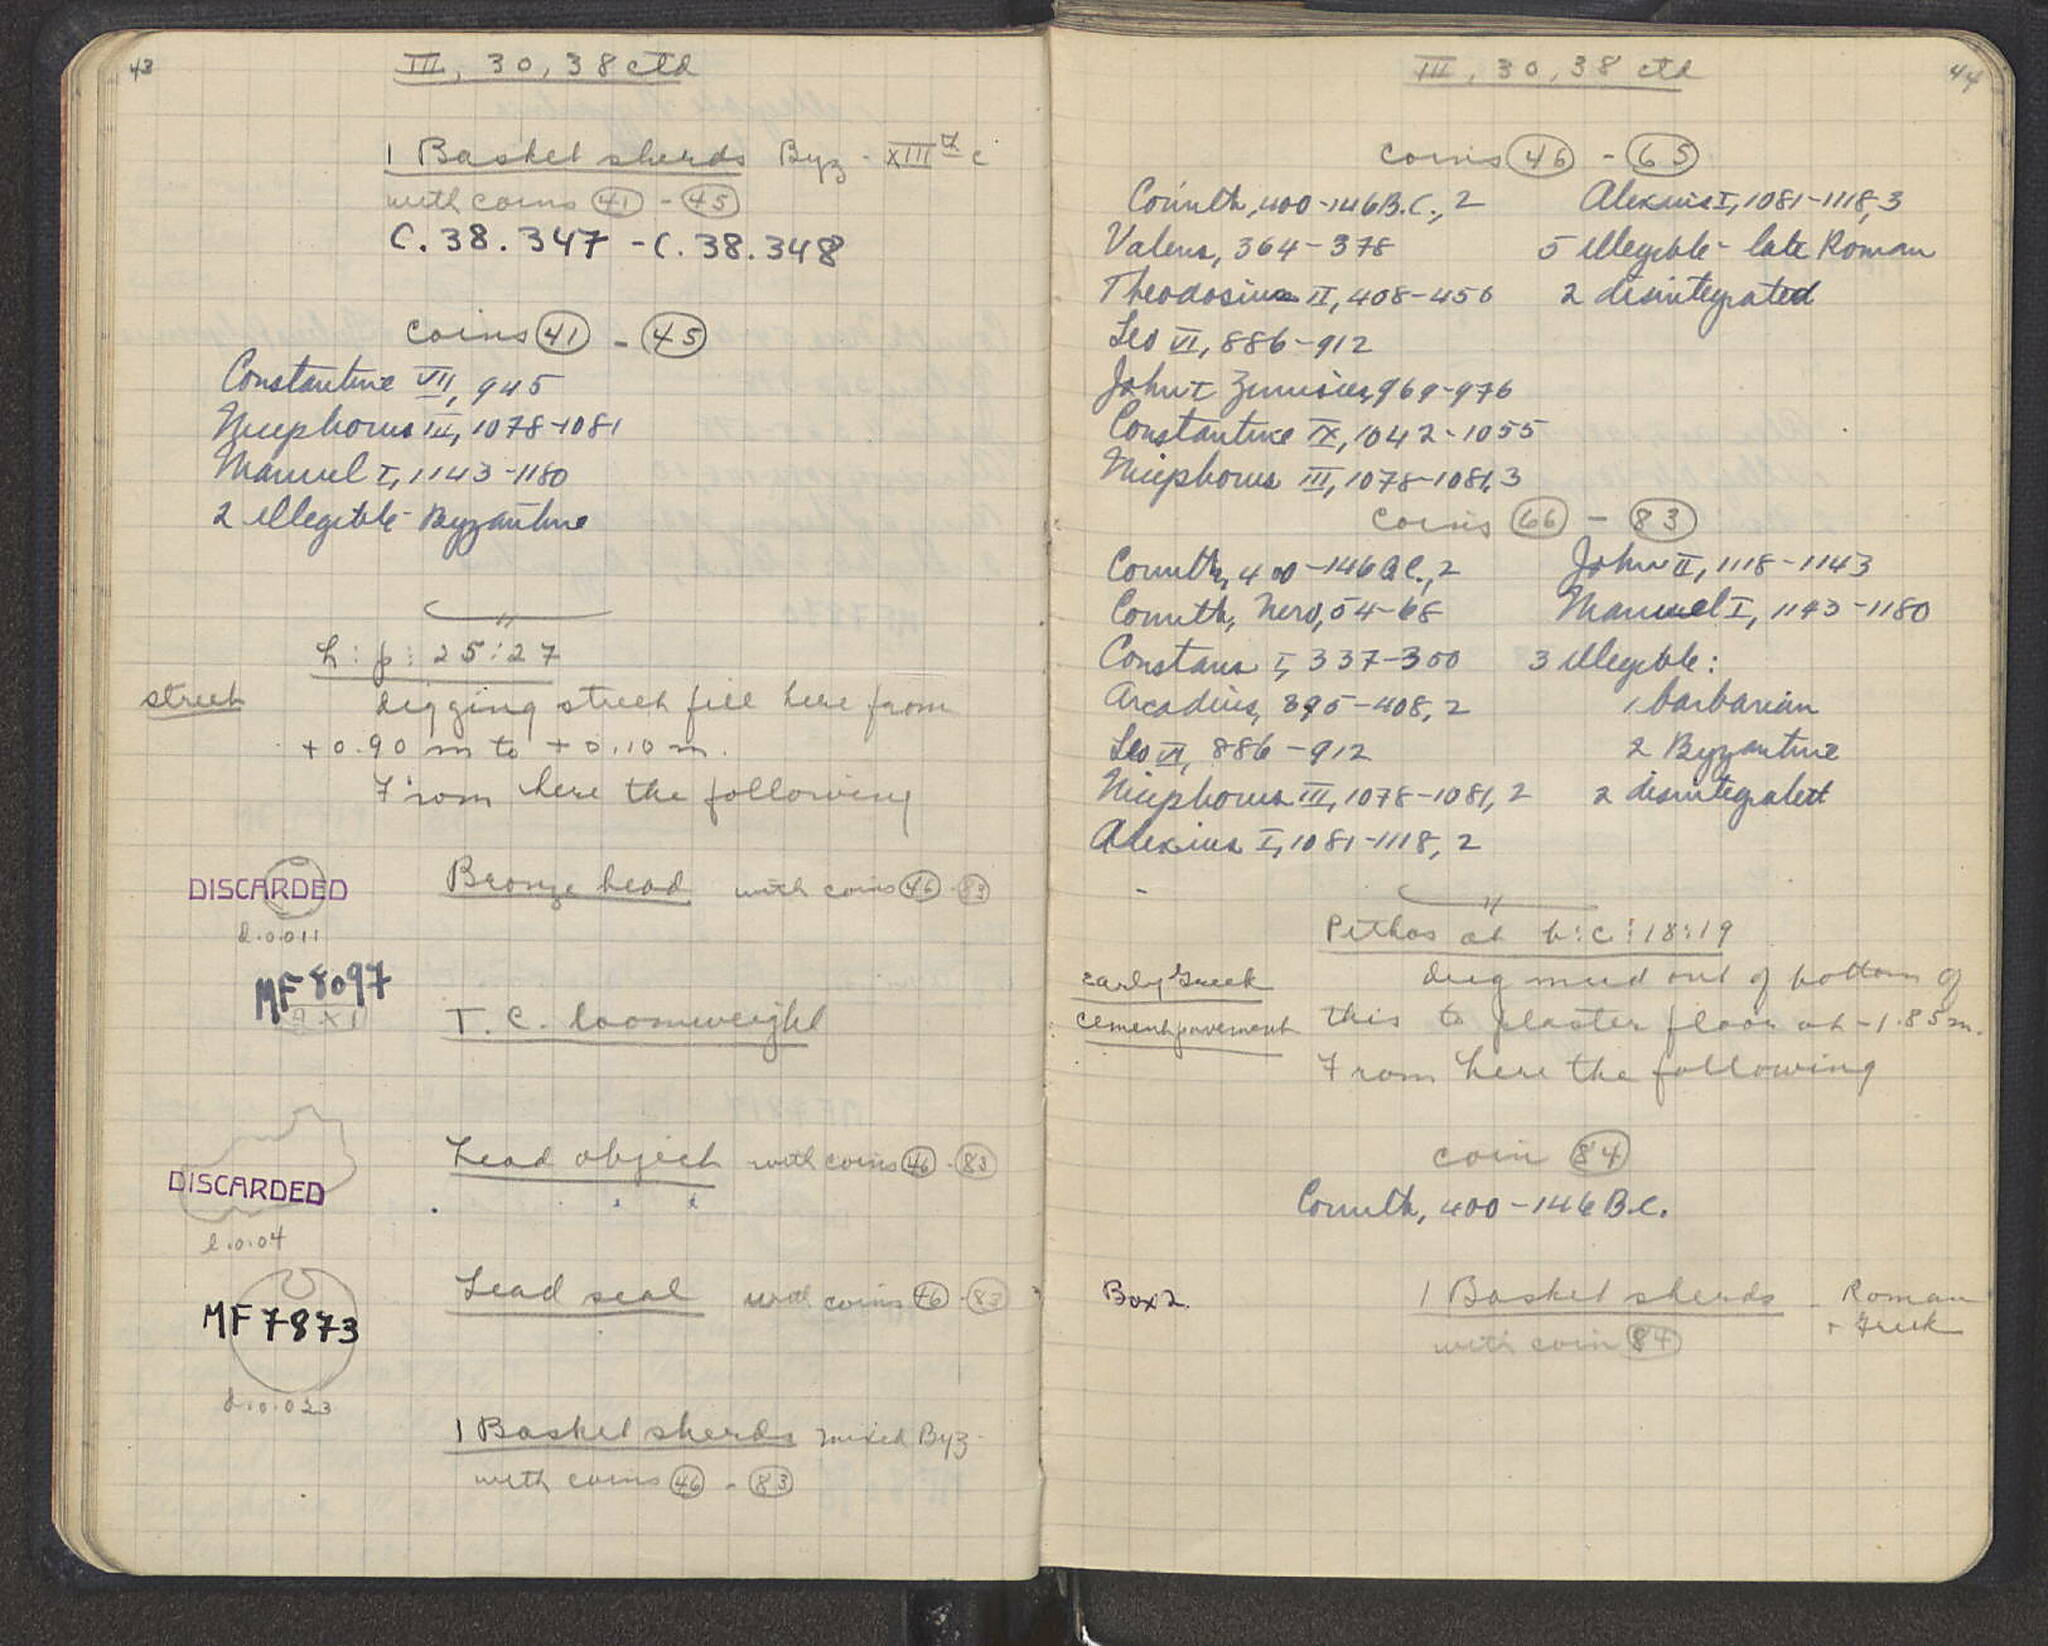 43
III, 30, 38 ctd
1 Basket sherds Byz - XIII th c
with coins 41 - 45
C.38.347 - C.38.348
coins 41 - 45
Constantine VII, 945
Nicephorus III, 1078-1081
Manuel I, 1143-1180
2 illegible - Byzantine
"
h:p:25:27
street digging street fill here from
+0.90 m to +0.10 m.
From here the following
DISCARDED Bronze bead with coins 46 - 83
d.0.011
MF 8097
T.C. loomweight
Lead object with coins 46 - 83
DISCARDED
l.0.04
Lead seal with coins 46 - 83
MF 7873
d.0.023
1 Basket sherds mixed Byz-
with coins 46 - 83
44
III, 30, 38 ctd
coins 46 - 65
Corinth, 400-146 B.C., 2 Alexius I, 1081-1118, 3
Valens, 364-378 5 illegible - late Roman
Theodosius II, 408-450 2 disintegrated
Leo VI, 886-912
John I Zimisces, 969-976
Constantine IX, 1042-1055
Nicephorus III, 1078-1081, 3
coins 66 - 83
Corinth, 400-146 B.C., 2 John II, 1118-1143
Corinth, Nero, 54-68 Manuel I, 1143-1180
Constans I, 337-300 3 illegible:
Arcadius, 395-408, 2 1 barbarian
Leo VI, 886-912 2 Byzantine
Nicephorus III, 1078-1081, 2 2 disintegrated
Alexius I, 1081-1118, 2
"
Pithos at b:c:18:19
Early Greek dug mud out of bottom of
cement pavement this to plaster floor at -1.85 m.
From here the following
coin 84
Corinth, 400-146 B.C.
Box 2. 1 Basket sherds - Roman
+ Greek
with coin 84